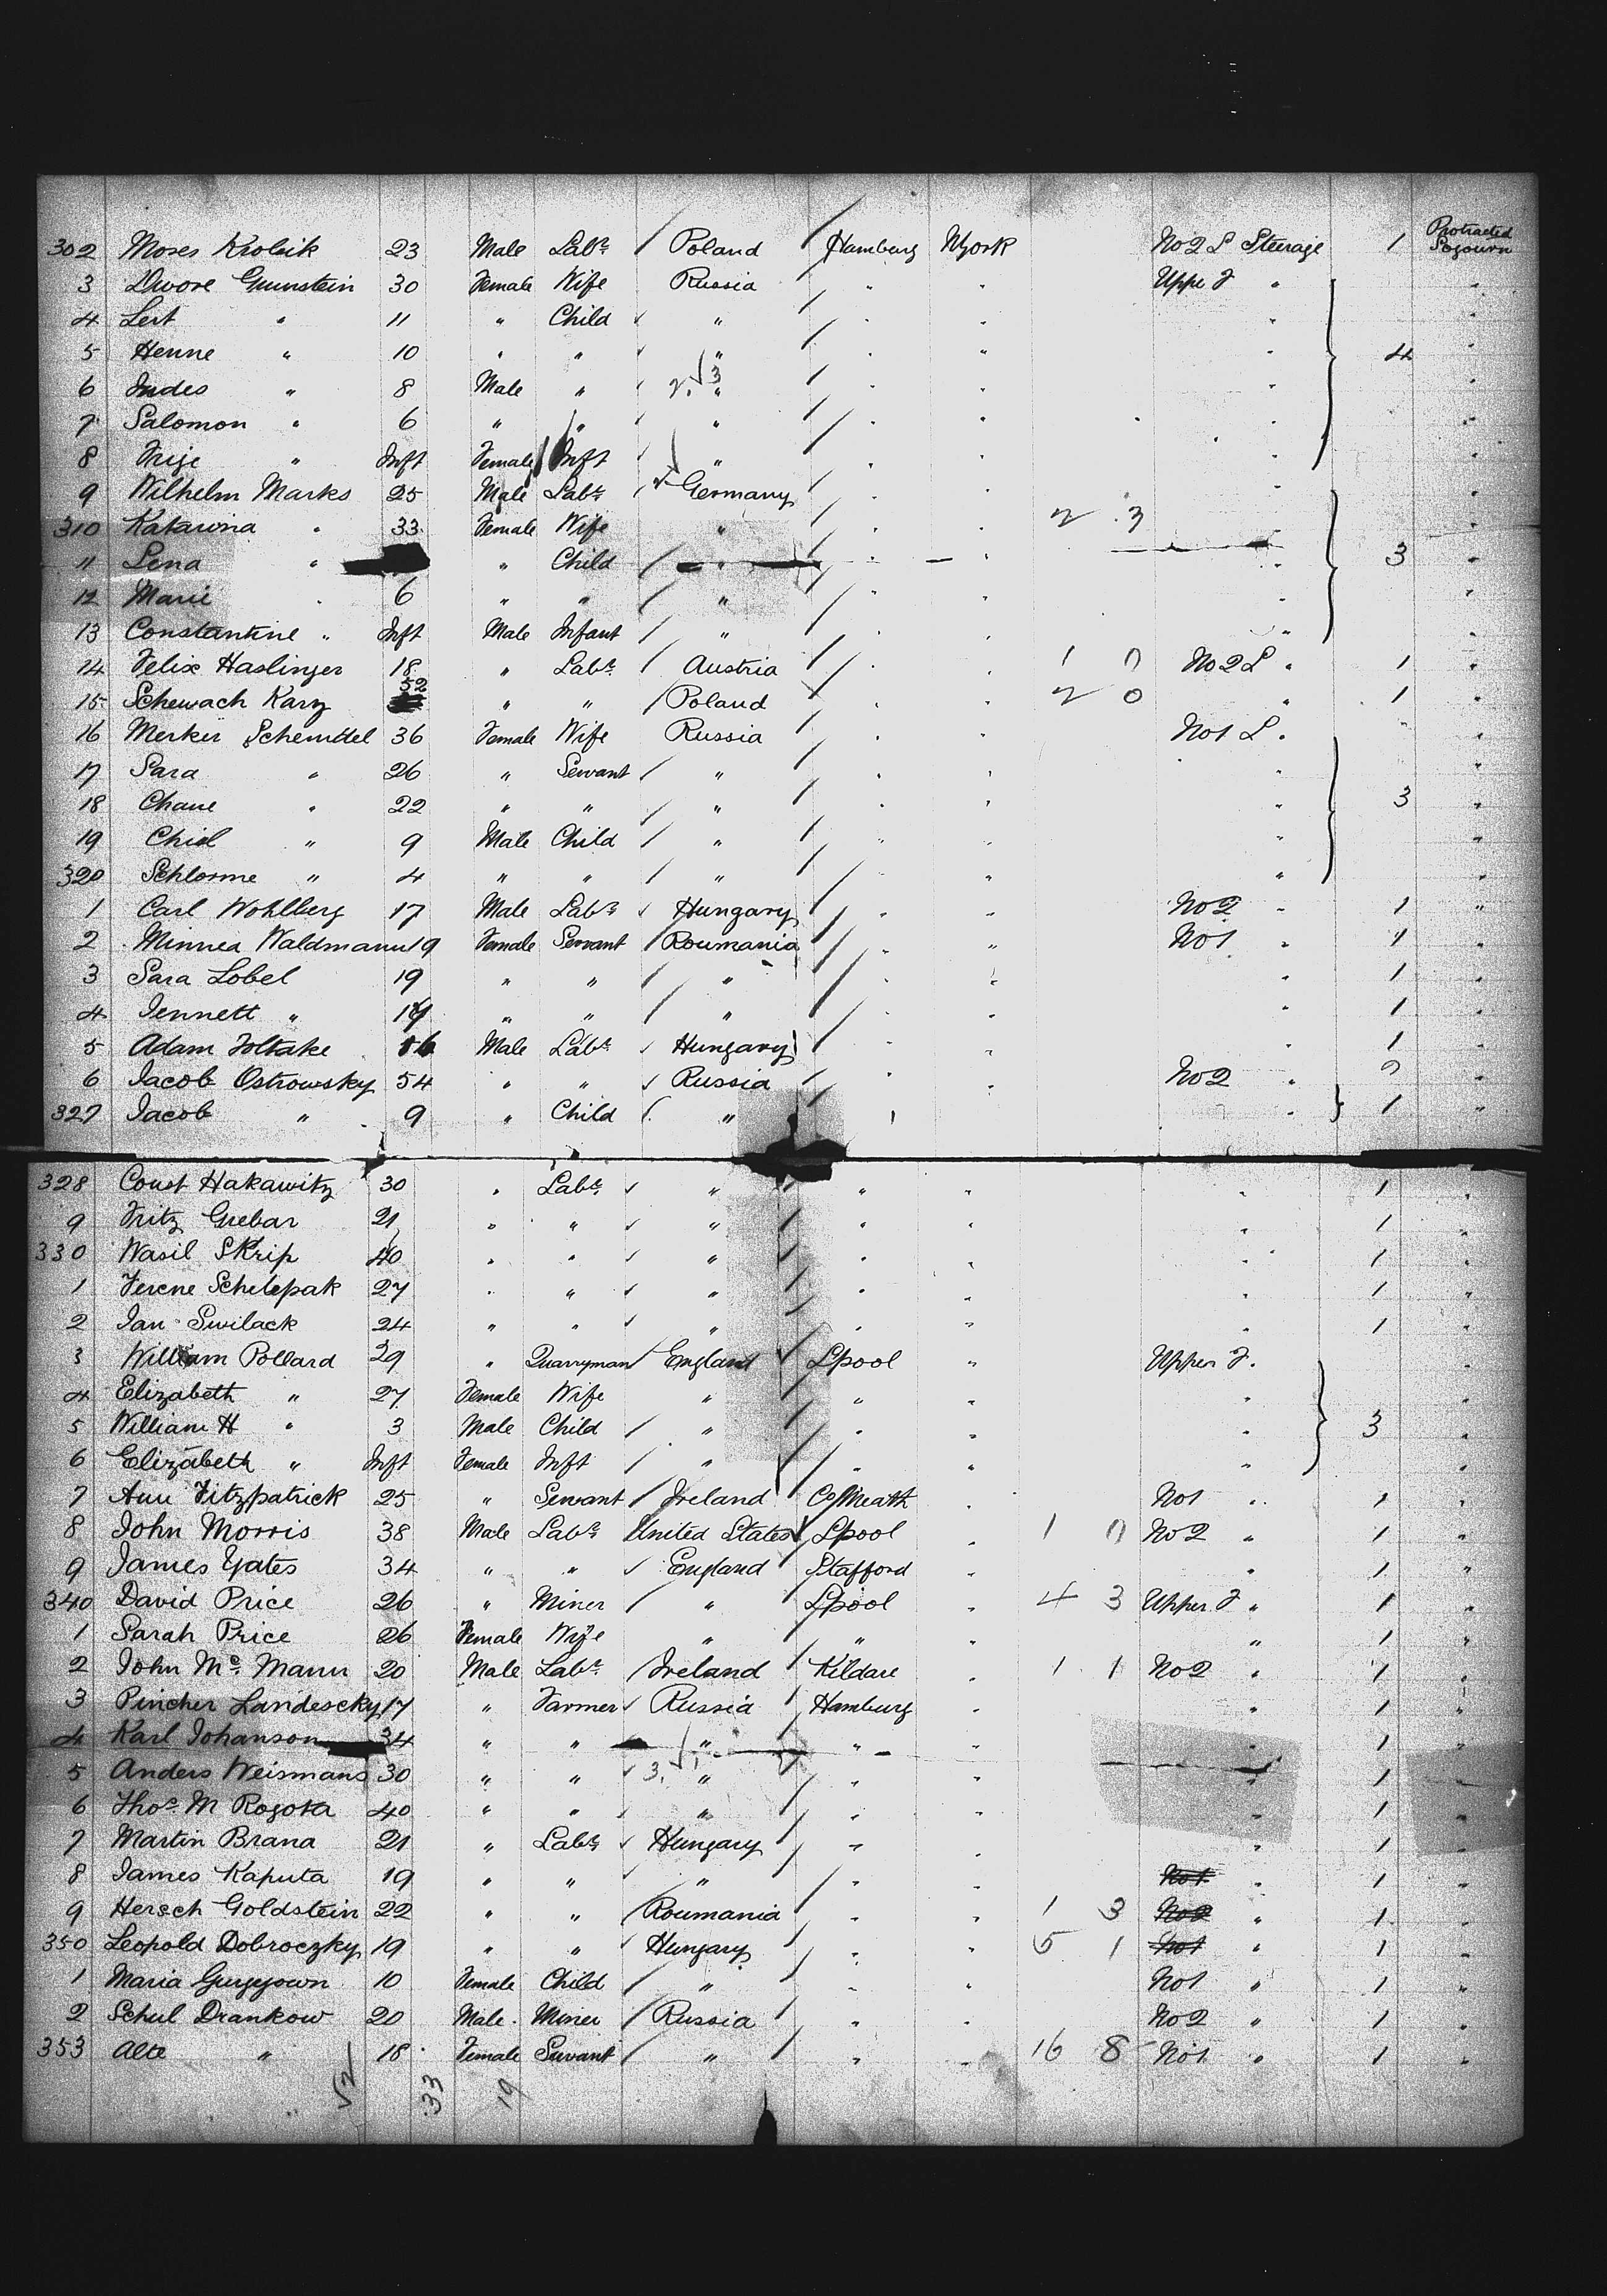 302 Moses Krolsik 23 Male Labr Poland Hamburg NYork No 2 L Steerage 1 Protracted Sojourn
3 Dwore Grunstein 30 Female Wife Russia " " Uppr F "
4 Lert " 11 " Child " " " " "
5 Henne " 10 " " " " " " 4 "
6 Judes " 8 Male " " " " " "
7 Salomon " 6 " " " " " " "
8 Frije " Inft Female Inft " " " " "
9 Wilhelm Marks 25 Male Labr Germany " " " "
310 Katarina " 33 Female Wife " " " 2 3 " "
11 Lena " " Child " " " " 3 "
12 Marie " 6 " " " " " " "
13 Constantine " Inft Male Infant " " " " "
14 Felix Haslinger 18 " Labr Austria " " 1 0 No 2 L " 1 "
15 Schewach Karz 52 " " Poland " " 2 0 " 1 "
16 Merker Schemtel 36 Female Wife Russia " " No 1 L " "
17 Sara " 26 " Servant " " " " "
18 Chane " 22 " " " " " " 3 "
19 Chiel " 9 Male Child " " " " "
320 Schlome " 4 " " " " " " "
1 Carl Wohlberg 17 Male Labr Hungary " " No 2 " 1 "
2 Minnea Waldmann 19 Female Servant Roumania " " No 1 " 1 "
3 Sara Lobel 19 " " " " " " 1 "
4 Jennett " 19 " " " " " " 1 "
5 Adam Joltake 16 Male Labr Hungary " " " 1 "
6 Jacob Ostrowsky 54 " " Russia " " No 2 " "
327 Jacob " 9 " Child " " " 1 "
328 Const Hakawitz 30 " Labr " " " " 1 "
9 Fritz Grebar 21 " " " " " " 1 "
330 Wasil Skrip 40 " " " " " " 1 "
1 Ferene Schelepak 27 " " " " " " 1 "
2 Jan Swilack 24 " " " " " " 1 "
3 William Pollard 29 " Quarryman England Lpool " Upper F. "
4 Elizabeth " 27 Female Wife " " " " "
5 William H " 3 Male Child " " " " 3 "
6 Elizabeth " Inft Female Inft " " " " "
7 Ann Fitzpatrick 25 " Servant Ireland Co Meath " No 1 " 1 "
8 John Morris 38 Male Labr United States Lpool " 1 0 No 2 " 1 "
9 James Yates 34 " " England Stafford " " 1 "
340 David Price 26 " Miner " Lpool " 4 3 Upper F " 1 "
1 Sarah Price 26 Female Wife " " " " 1 "
2 John Mc Mann 20 Male Labr Ireland Kildare " 1 1 No 2 " 1 "
3 Pincher Landescky 17 " Farmer Russia Hamburg " " 1 "
4 Karl Johanson 34 " " " " " " 1 "
5 Anders Weismans 30 " " " " " " 1 "
6 Thos M Rogota 40 " " " " " " 1 "
7 Martin Brana 21 " Labr Hungary " " " 1 "
8 James Kaputa 19 " " " " " No 1 " 1 "
9 Hersch Goldstein 22 " " Roumania " " 1 3 No 2 " 1 "
350 Leopold Dobroczky 19 " " Hungary " " 5 1 No 1 " 1 "
1 Maria 10 Female Child " " " No 1 " 1 "
2 Schul Drankow 20 Male Miner Russia " " No 2 " 1 "
353 Alte " 18 Female Servant " " " 16 8 No 1 " 1 "
52 33 19